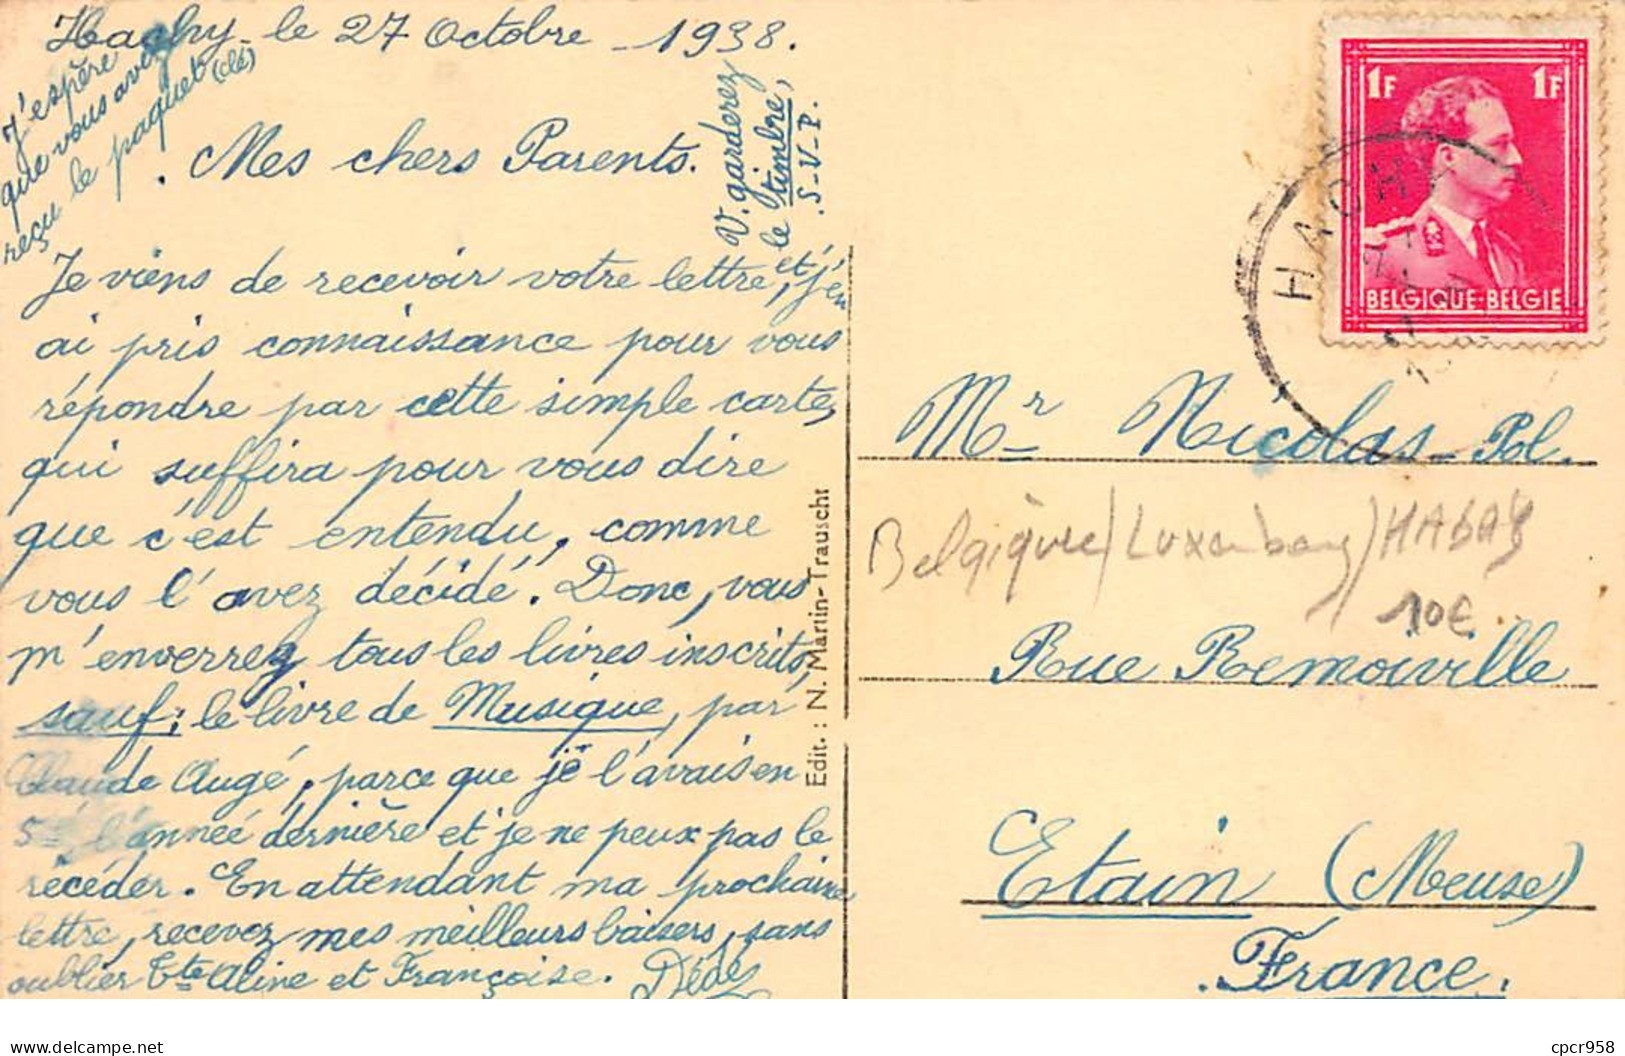 Hachy - le 27 Octobre - 1938.
J'espère
que vous avez
reçu le paquet (clé)
V. garderez
le timbre,
S-V-P.
. Mes chers Parents.
Je viens de recevoir votre lettre, et j'en
ai pris connaissance pour vous
répondre par cette simple carte,
qui suffira pour vous dire
que c'est entendu, comme
vous l'avez décidé. Donc, vous
m'enverrez tous les livres inscrits,
sauf: le livre de Musique, par
Claude Augé, parce que je l'avais en
5e l'année dernière et je ne peux pas le
récéder. En attendant ma prochaine
lettre, recevez mes meilleurs baisers, sans
oublier Tte Aline et Françoise. Dédé
Edit. : N. Martin-Trauscht
1F 1F
BELGIQUE-BELGIE
HACHY
Mr Nicolas-Pol.
Belgique/Luxembourg/HABAY
10€
Rue Remoiville
Etain (Meuse)
. France.
delcampe.net
cpcr958